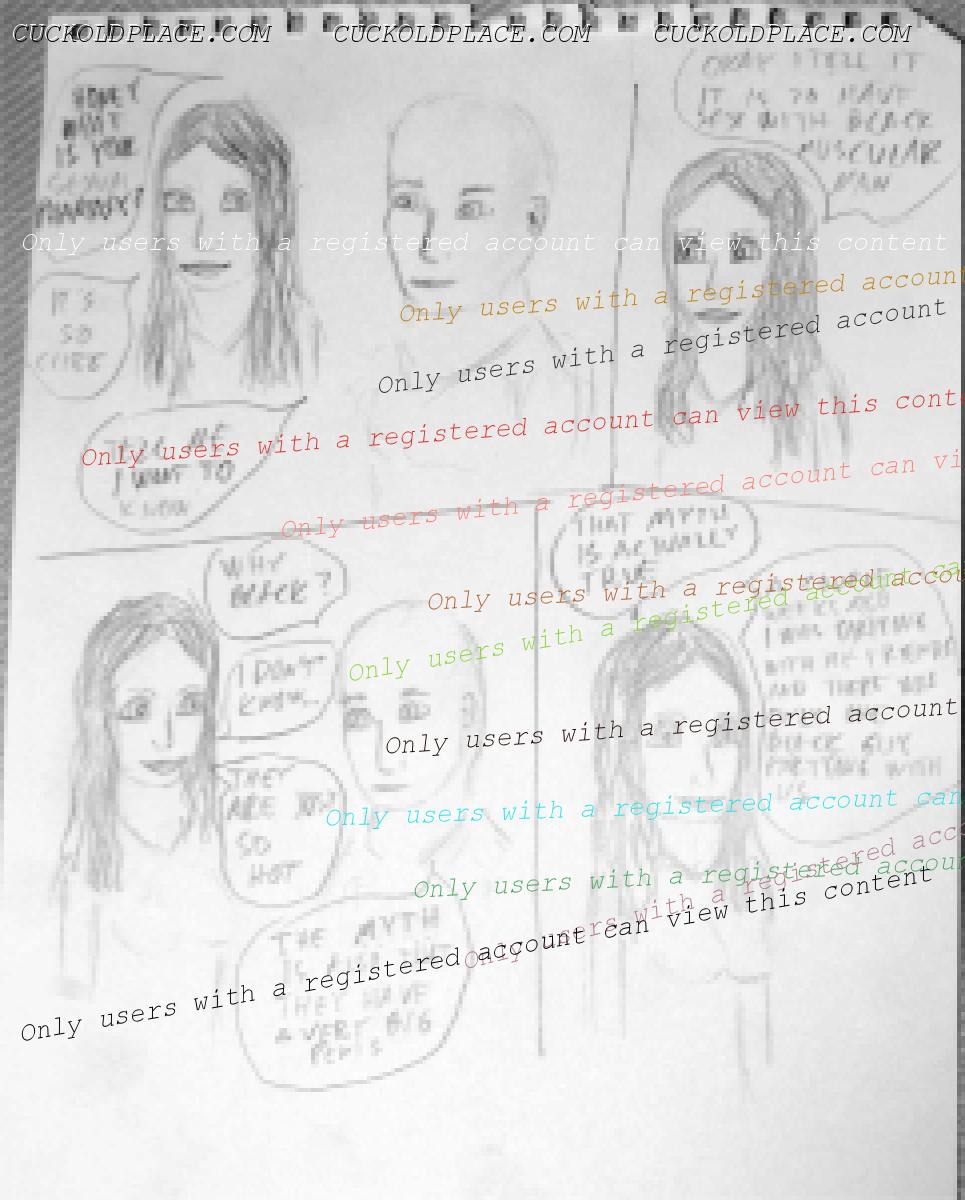 CUCKOLDPLACE.COM CUCKOLDPLACE.COM CUCKOLDPLACE.COM
HONEY
WHAT
IS YOUR
IT'S
SO
TELL ME
I WANT TO
KNOW
OKAY I TELL IT
IT IS TO HAVE
SEX WITH BLACK
MUSCULAR
MAN
Only users with a registered account can view this content
Only users with a registered account
Only users with a registered account
Only users with a registered account can view this cont
Only users with a registered account can vi
WHY
BLACK?
I DON'T
KNOW
THEY
ARE
SO
HOT
THE MYTH
THEY HAVE
A VERY BIG
PENIS
THAT MYTH
IS ACTUALLY
TRUE
I WAS
WITH MY FRIEND
AND THERE WAS
GUY
WITH
US
Only users with a registered accou
Only users with a registered account ca
Only users with a registered account
Only users with a registered account can
Only users with a registered accoun
Only users with a registered acc
Only users with a registered account can view this content